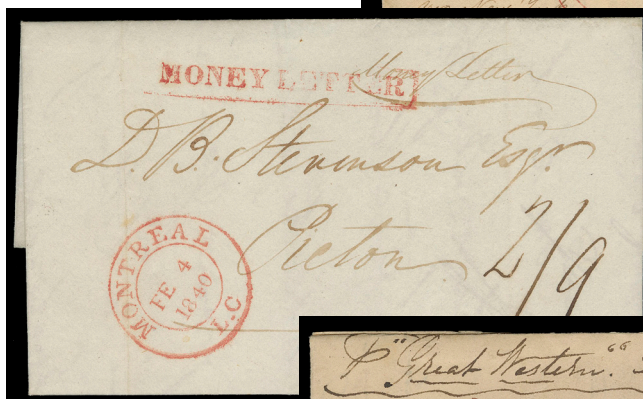 MONEY LETTER
Money Letter
D. B. Stevenson Esqr.
Picton
2/9
MONTREAL
FE 4
1840
L.C
P "Great Western."